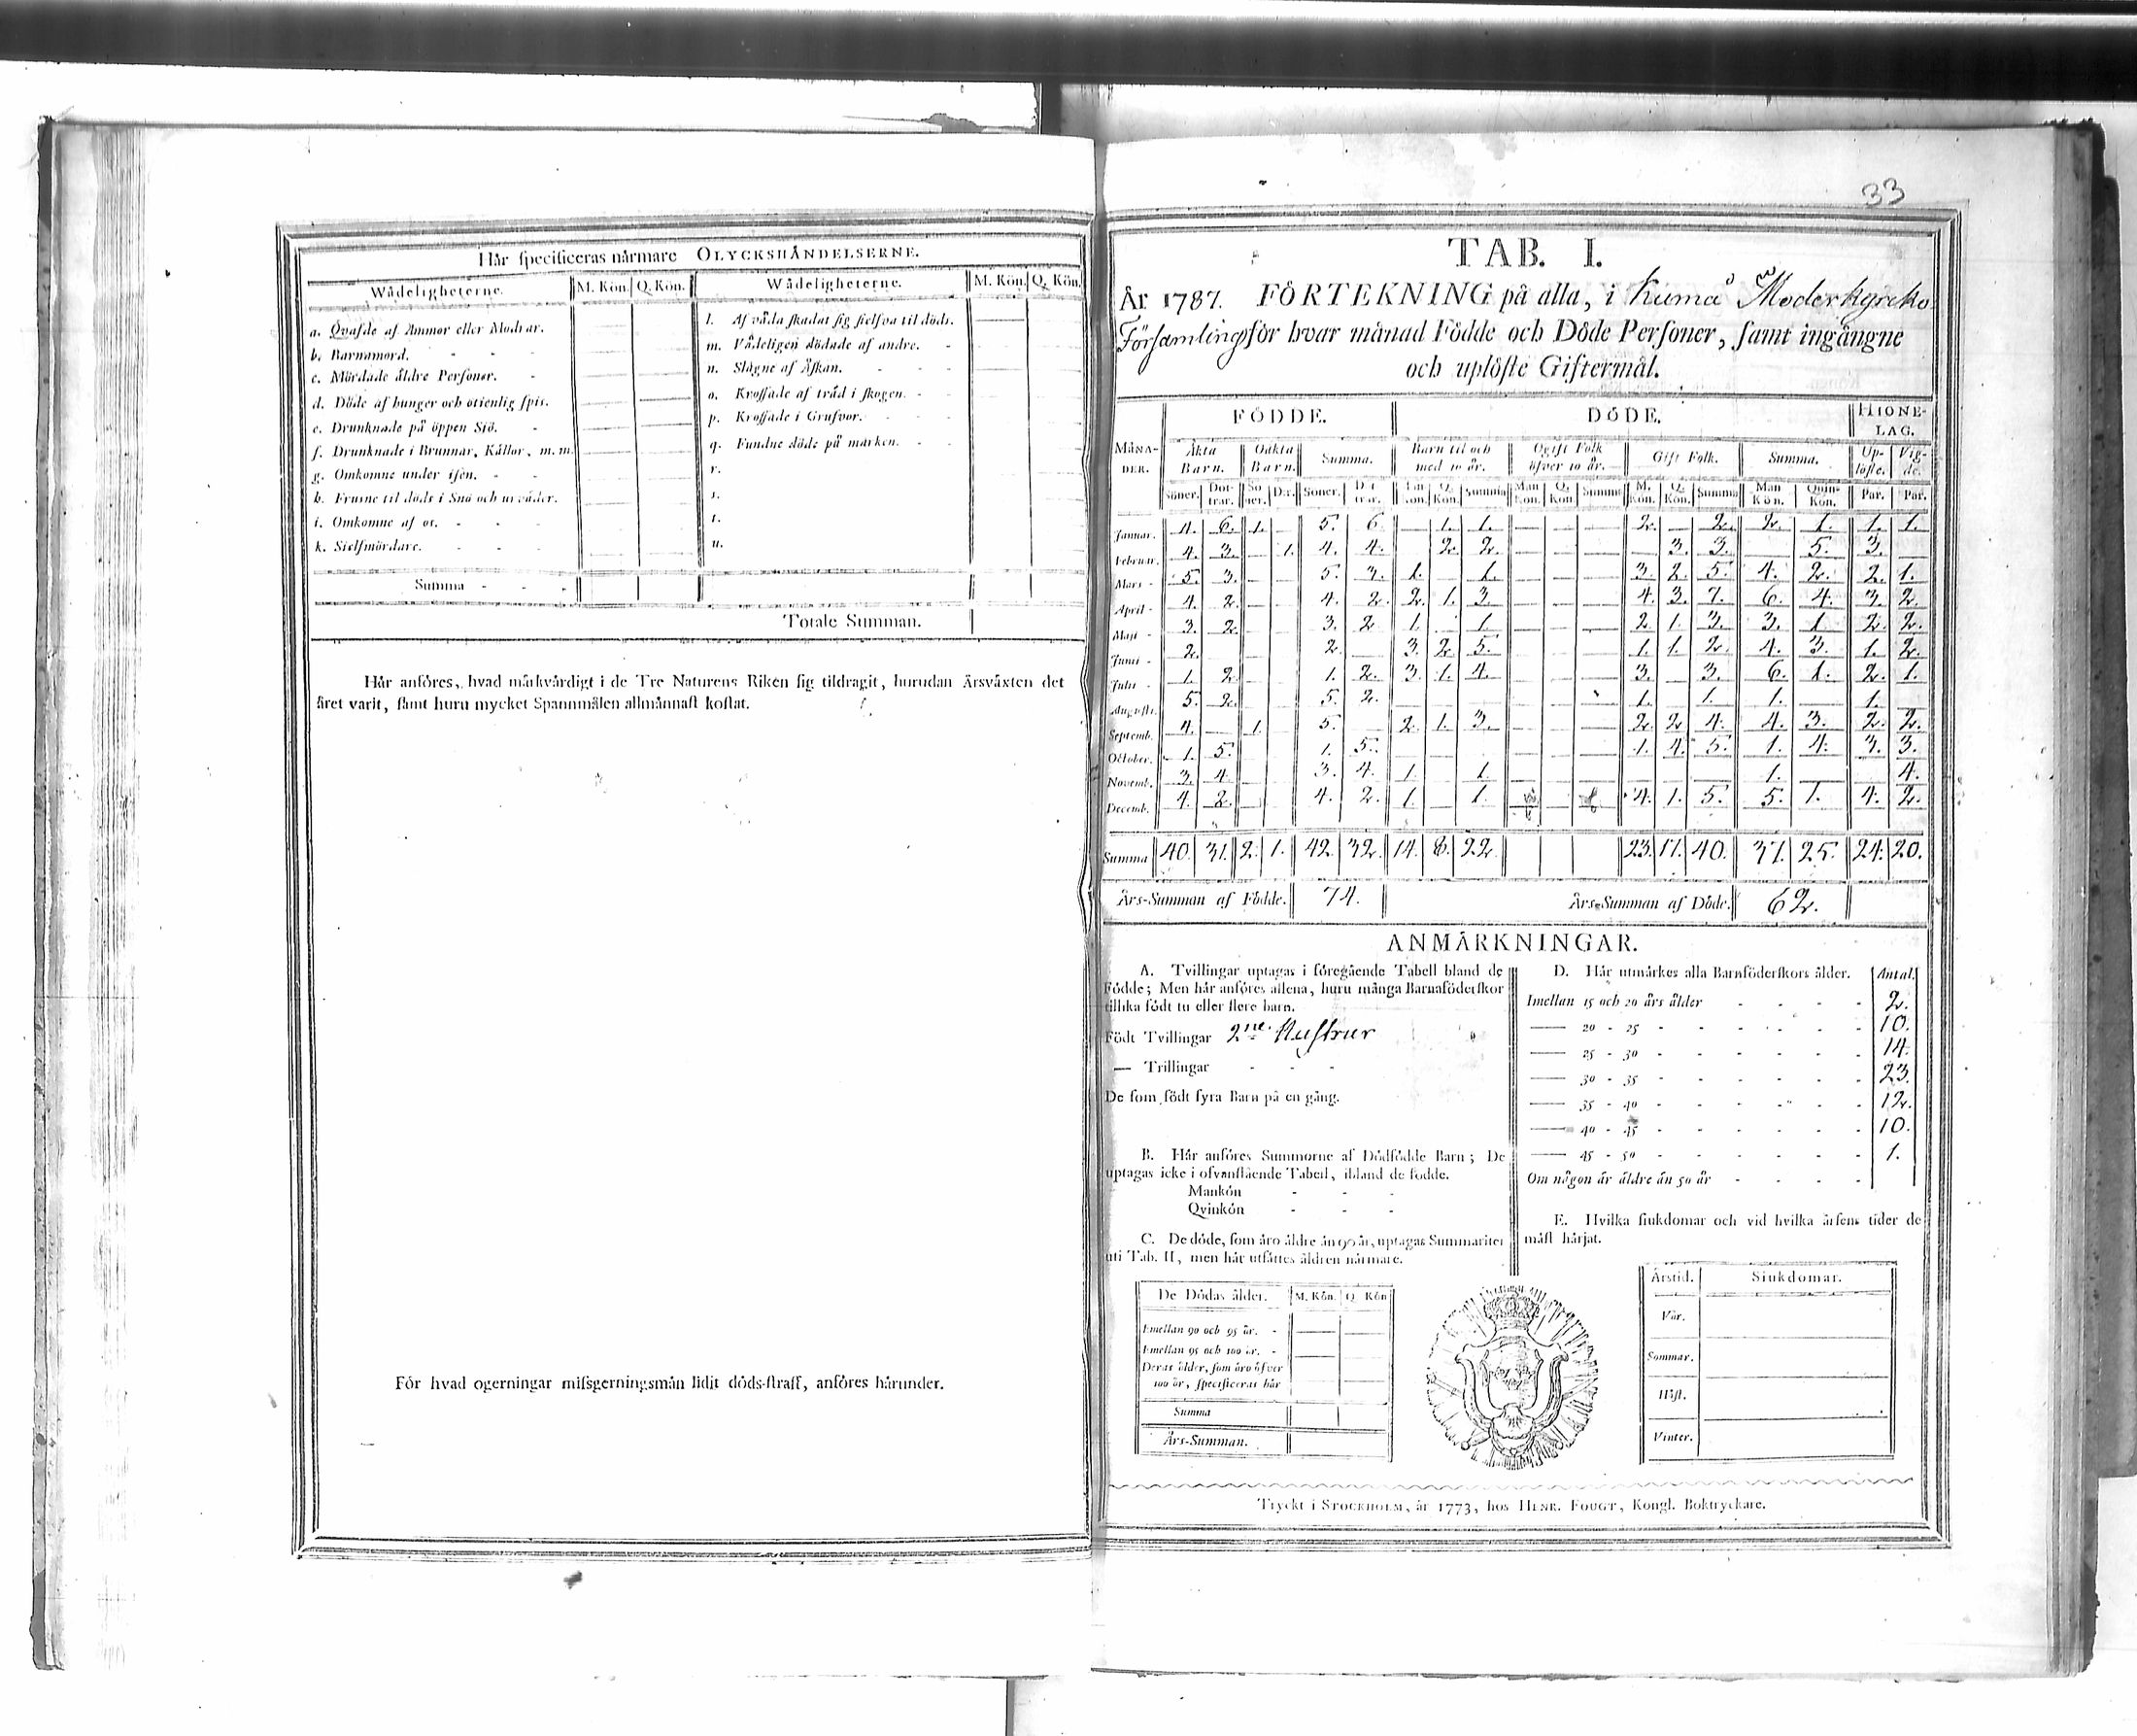 Hår specificeras nårmare OLYCKSHÅNDELSERNE.
Wådeligheterne. M. Kön. Q. Kön. Wådeligheterne. M. Kön. Q. Kön.
a. Qvafde af Ammor eller Modrar.
b. Barnamord. - - -
c. Mördade åldre Personer. -
d. Döde af hunger och otienlig spis.
e. Drunknade på öppen Siö. -
f. Drunknade i Brunnar, Kållor, m. m.
g. Omkomne under isen. - -
h. Frusne til döds i Snö och urvåder.
i. Omkomne af os. - - -
k. Sielfmördare. - - -
l. Af våda skadat sig sielfva til döds.
m. Vådeligen dödade af andre. -
n. Slagne af Åskan. - - -
o. Krossade af tråd i skogen. - -
p. Krossade i Grufvor. - - -
q. Fundne döde på marken. - -
r.
s.
t.
u.
Summa - - -
Totale Summan.
Hår anföres, hvad mårkvårdigt i de Tre Naturens Riken sig tildragit, hurudan Årsvåxten det
året varit, samt huru mycket Spannmålen allmånnast kostat.
För hvad ogerningar missgerningsmån lidit döds-straff, anföres hårunder.
33
TAB. I.
År 1787. FÖRTEKNING på alla, i Kumo Moderkyrko
Församling för hvar månad Födde och Döde Personer, samt ingångne
och uplöste Giftermål.
MÅNA-DER. FÖDDE. DÖDE. HIONE-LAG.
Åkta Barn. Oåkta Barn. Summa. Barn til och med 10 år. Ogift Folk öfver 10 år. Gift Folk. Summa. Up-löste. Vig-de.
Söner. Döt-trar. Sö-ner. D:r. Söner. Dö-trar. M. Kön. Q. Kön. Summa Man Kön. Q. Kön. Summa M. Kön. Q. Kön. Summa Man Kön. Quin-Kön. Par. Par.
Januar. 4. 6. 1. — 5. 6. — 1. 1. — — — 2. — 2. 2. 1. 1. 1.
Februar. 4. 3. — 1. 4. 4. 2. 2. — — — — 3. 3. — 5. 3. —
Mars - 5. 3. 5. 3. 1. 1. — — — 3. 2. 5. 4. 2. 2. 1.
April - 4. 2. 4. 2. 2. 1. 3. 4. 3. 7. 6. 4. 3. 2.
Maji - 3. 2. 3. 2 1. 1. — — — 2. 1. 3. 3. 1. 2. 2.
Junii - 2. 2. — 3. 2. 5. — — — 1. 1. 2. 4. 3. 1. 2.
Julii - 1. 2. 1. 2. 3. 1. 4. — — — 3. — 3. 6. 1. 2. 1.
Augusti. 5. 2. 5. 2. 1. 1. 1. — 1. —
Septemb. 4. — 1. 5. — 2. 1. 3. — — — 2. 2. 4. 4. 3. 2. 2.
October. 1. 5. 1. 5. — — — 1. 4. 5. 1. 4. 3. 3.
Novemb. 3. 4. 3. 4. 1. 1. — — — — — — 1. — — 4.
Decemb. 4. 2. — 4. 2. 1. — 1. 4. 1. 5. 5. 1. 4. 2.
Summa 40. 31. 2. 1. 42. 32. 14. 8. 22. 23. 17. 40. 37. 25. 24. 20.
Års-Summan af Födde. 74. Års-Summan af Döde. 62.
ANMÅRKNINGAR.
A. Tvillingar uptagas i föregående Tabell bland de
Födde; Men hår anföres allena, huru många Barnaföderskor
tillika födt tu eller flere barn.
Födt Tvillingar 2ne Hustrur
— Trillingar - - -
De som födt fyra Barn på en gång.
B. Hår anföres Summorne af Dödfödde Barn; De
uptagas icke i ofvanstående Tabell, ibland de födde.
Mankön - - -
Qvinkön - - -
C. De döde, som åro åldre ån 90 år, uptagas Summariter
uti Tab. II, men hår utsåttes åldren nårmare.
De Dödas ålder. M. Kön. Q. Kön
Emellan 90 och 95 år. -
Emellan 95 och 100 år. -
Deras ålder, som åro öfver
100 år, specificeras hår
Summa
Års-Summan.
D. Hår utmårkes alla Barnföderskors ålder. Antal.
Imellan 15 och 20 års ålder - - - - 2.
— 20 - 25 - - - - - 10.
— 25 - 30 - - - - - 14.
— 30 - 35 - - - - - 23.
— 35 - 40 - - - - - 12.
— 40 - 45 - - - - - 10.
— 45 - 50 - - - - - 1.
Om någon är äldre än 50 år - - - -
E. Hvilka siukdomar och vid hvilka årsens tider de
måst hårjat.
Årstid. Siukdomar.
Vår.
Sommar.
Höst.
Vinter.
Tryckt i STOCKHOLM, år 1773, hos HENR. FOUGT, Kongl. Boktryckare.